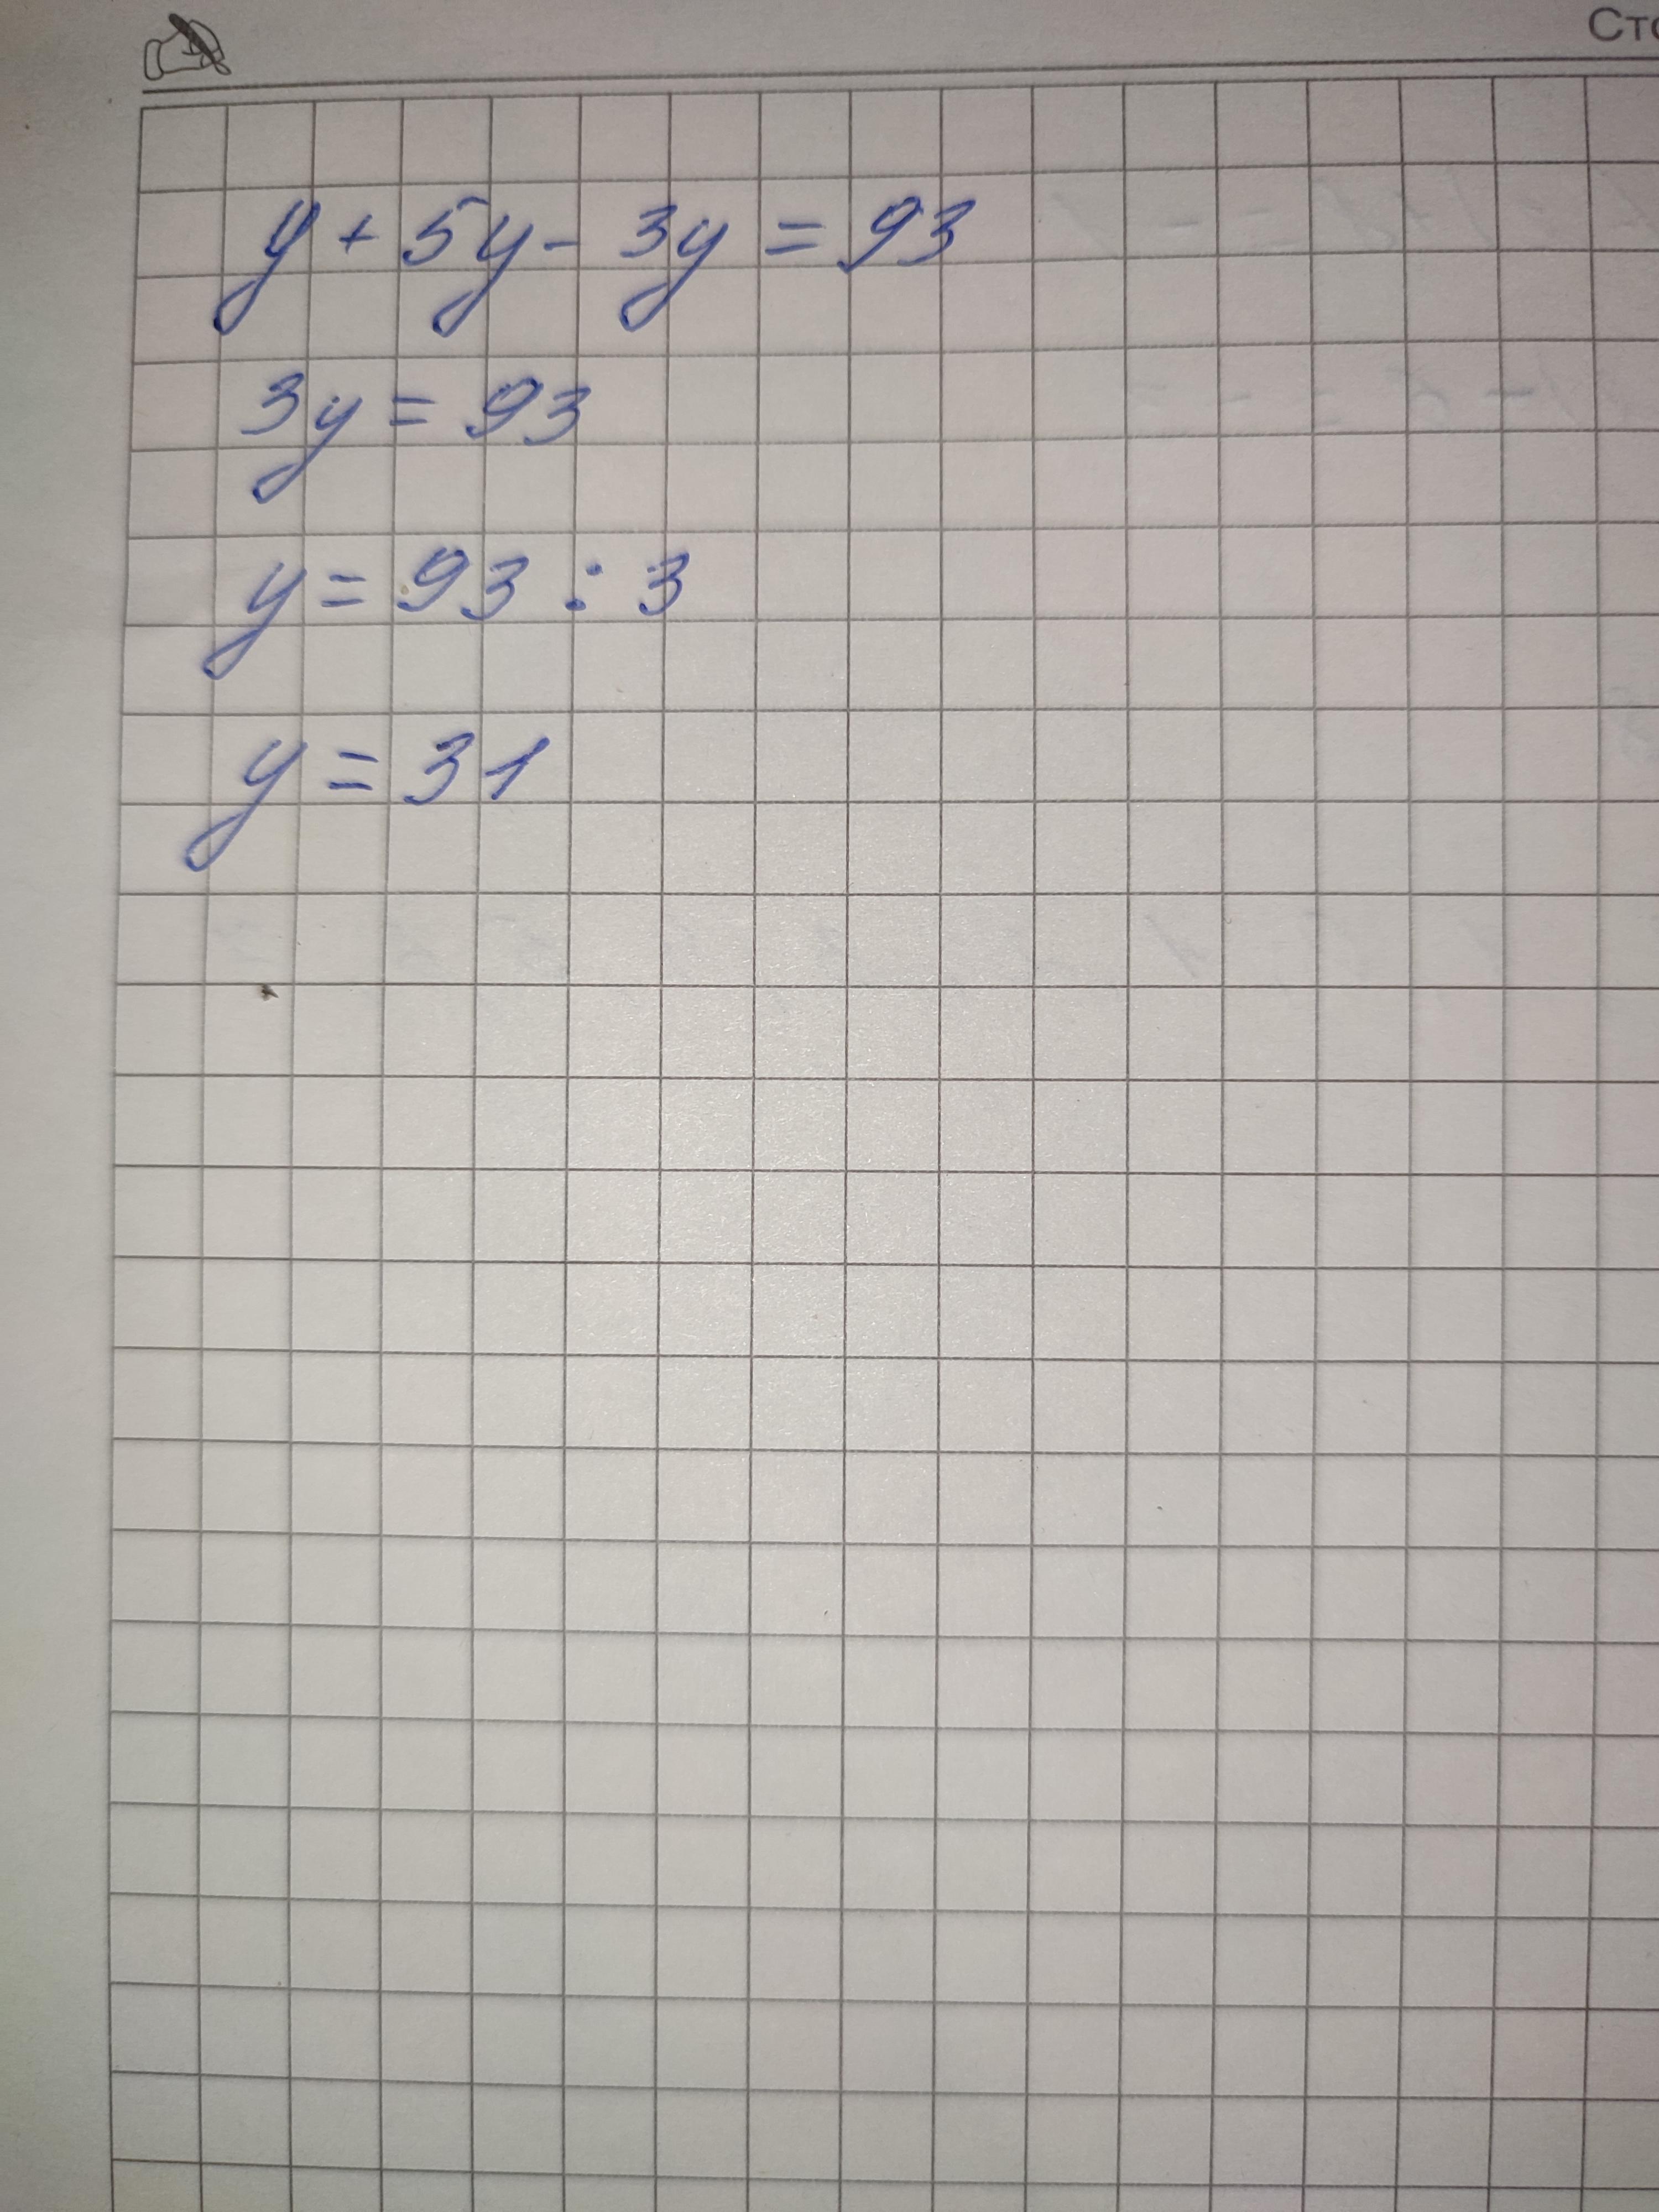 Сто
y + 5y - 3y = 93
3y = 93
y = 93 : 3
y = 31